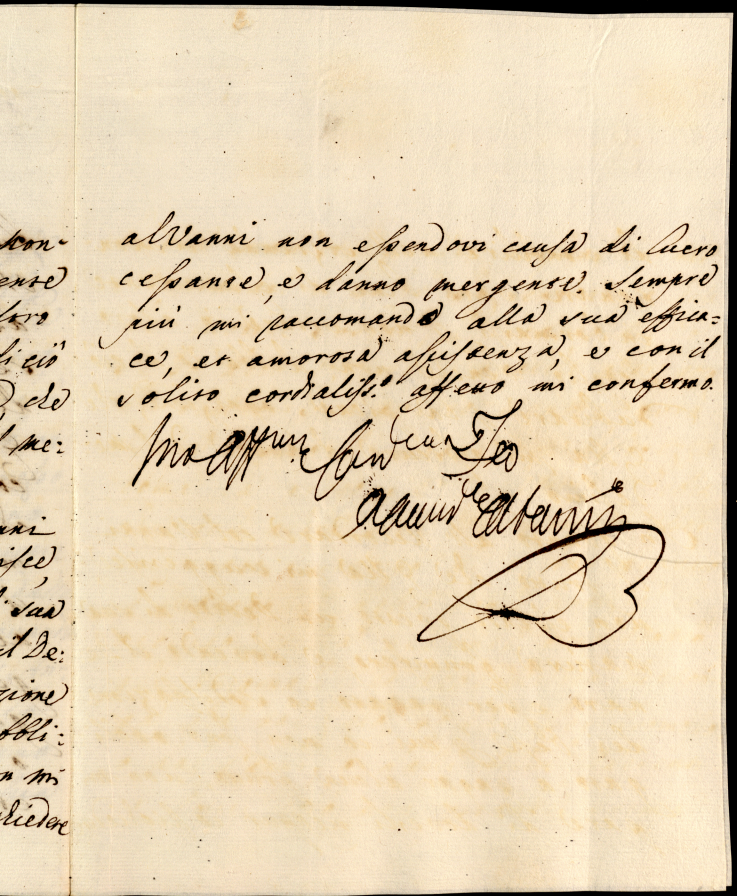 con=
ente
loro
di ciò
che
me:
nni
isce
sua
il De:
zione
bbli=
n mi
chiedere
al Vanni non essendovi causa di lucro
cessante, e danno mergente. Sempre
più mi raccomando alla sua effica=
ce, et amorosa assistenza, e con il
solito cordialiss.º affetto mi confermo.